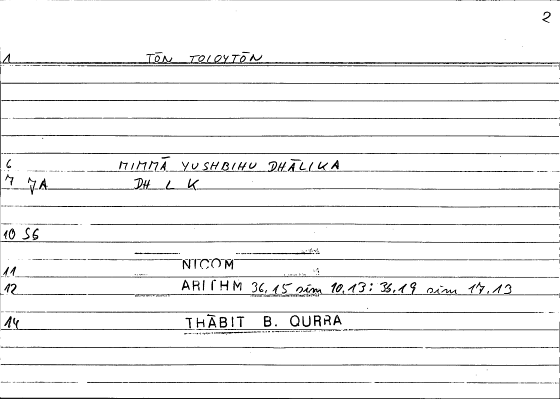 2
1 TŌN TOIOYTŌN
6 MIMMĀ YUSHBIHU DHĀLIKA
7 JA DH L K
10 SG
11 NICOM
12 ARITHM 36.15 sim 10.13: 36.19 sim 17.13
14 THĀBIT B. QURRA